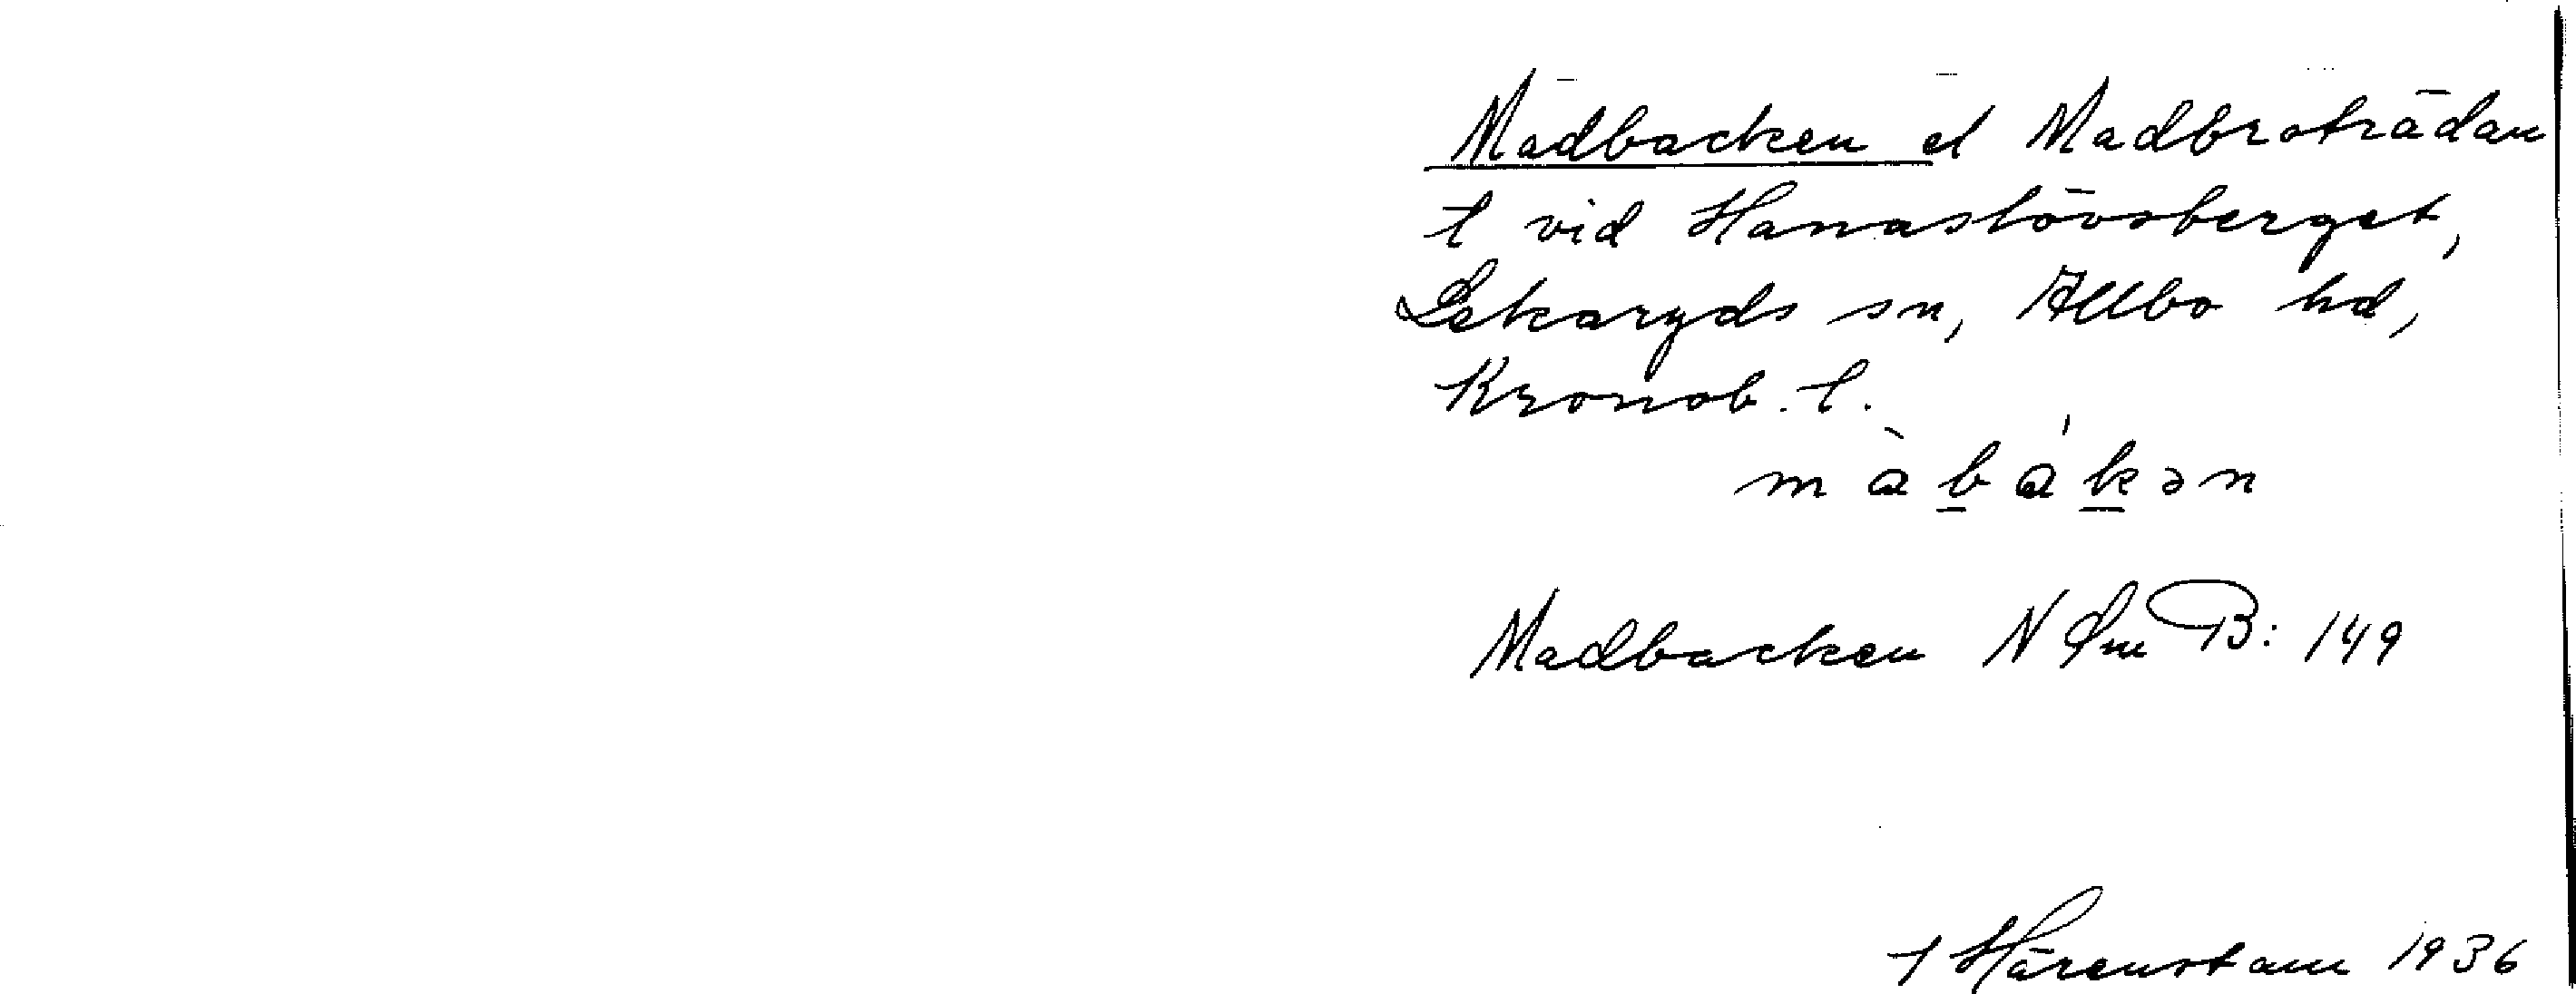 Madbacken el Madbroträdan
l vid Hanaslövsberget,
Lekaryds sn, Allbo hd,
Kronob. l.
m à b á k ə n
Madbacken N Sm B: 149
I Härenstam 1936